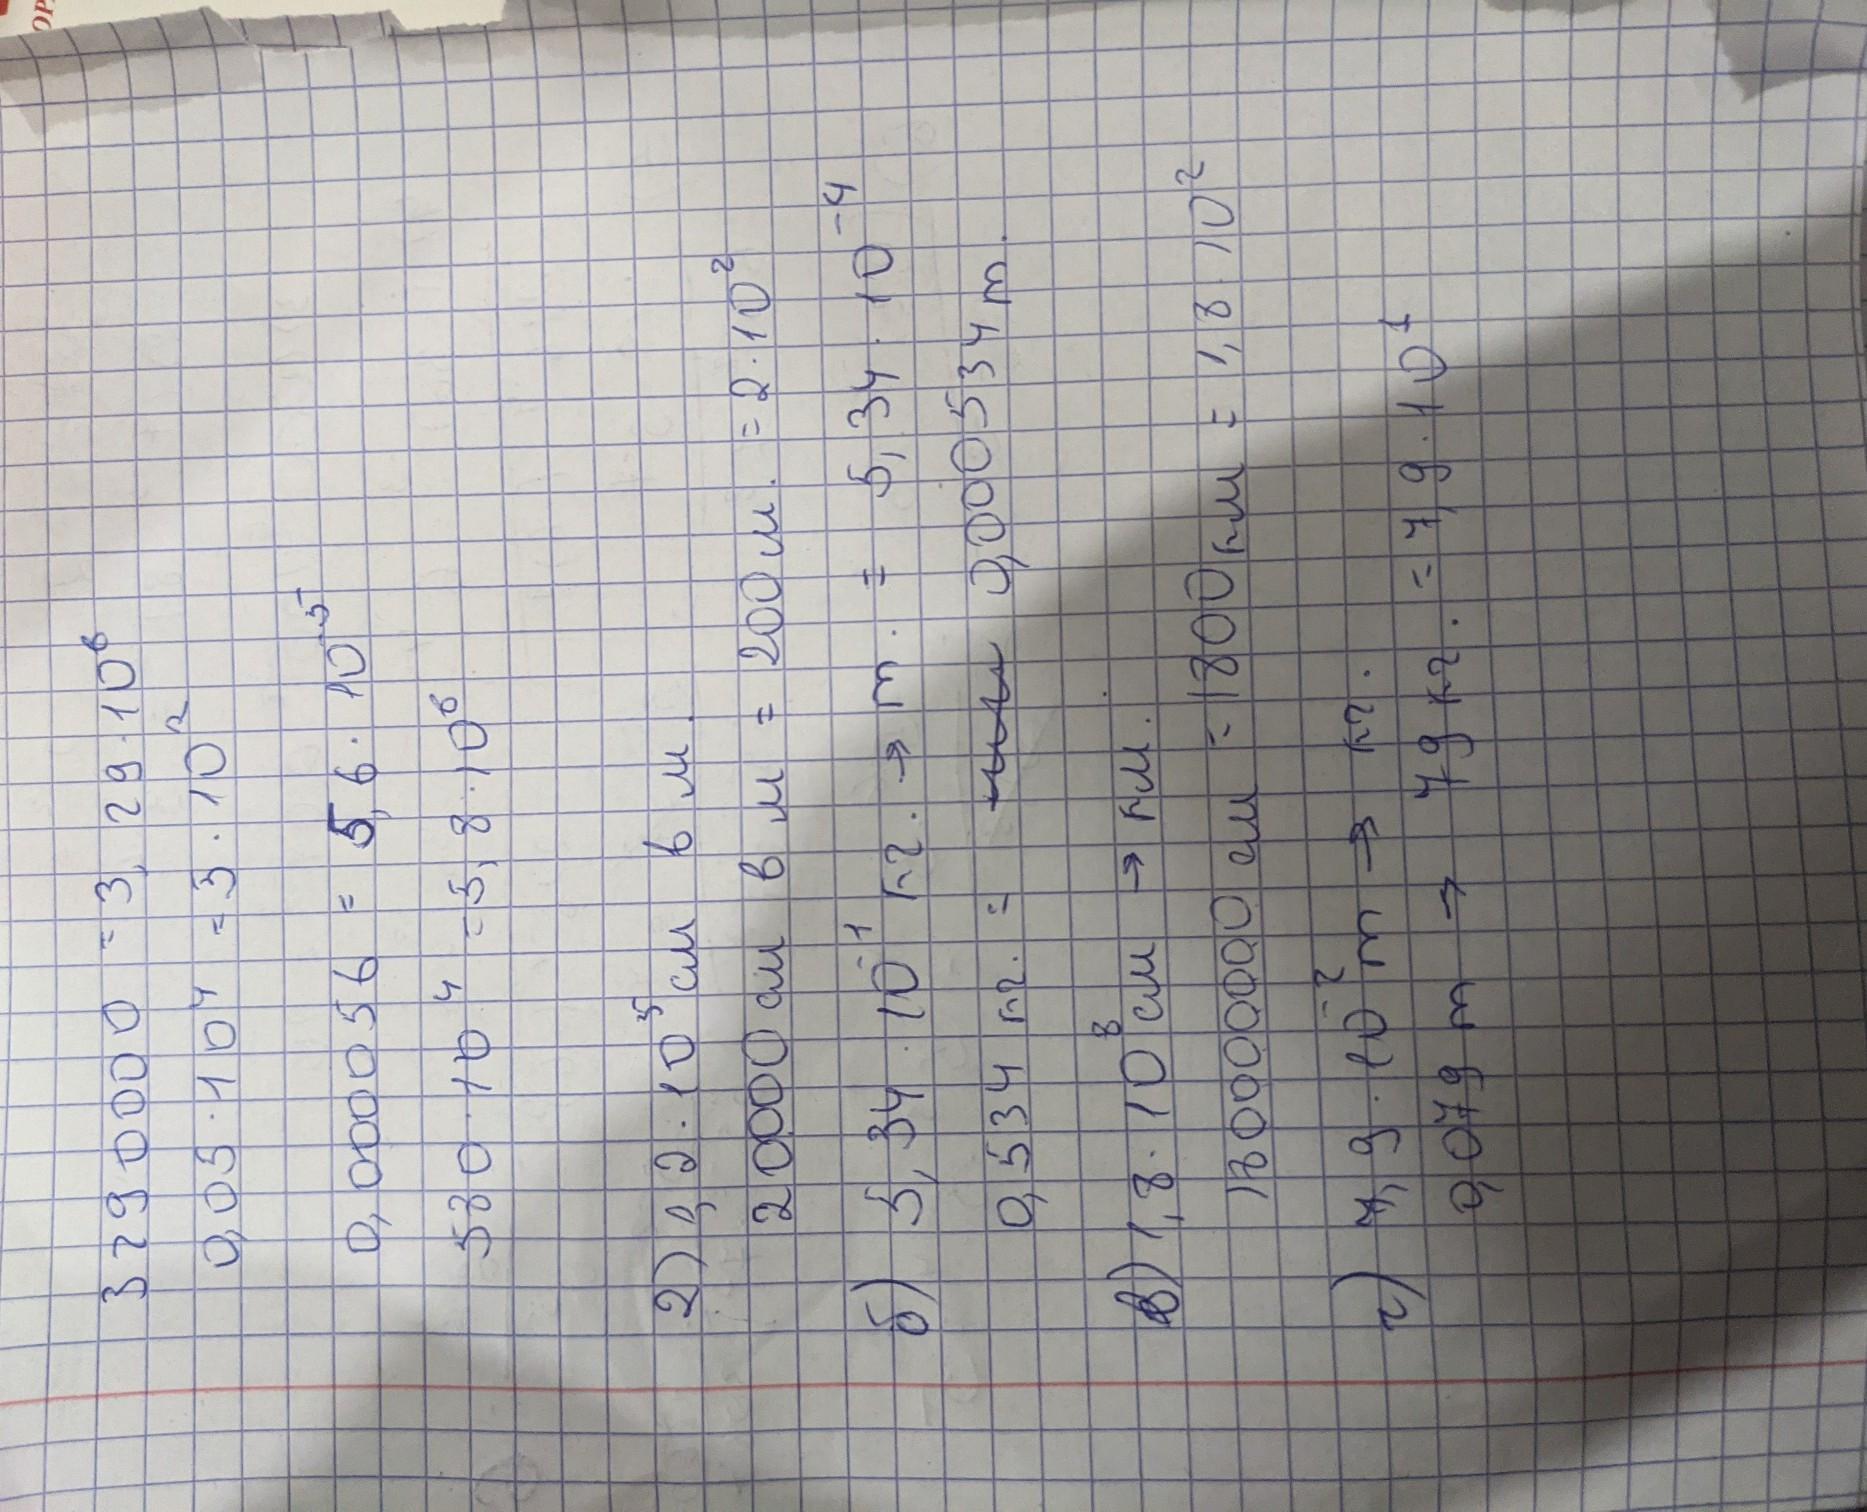 3290000 = 3,29·10⁶
0,03·10⁴ = 3·10²
0,000056 = 5,6·10⁻⁵
580·10⁴ = 5,8·10⁶
2) 0,2·10⁵ см в м.
20000 см в м = 200 м. = 2·10²
б) 5,34·10⁻¹ кг. → т. = 5,34·10⁻⁴
0,534 кг. = 0,000534 т.
в) 1,8·10⁸ см → км.
180000000 см = 1800 км = 1,8·10²
г) 7,9·10⁻² т → кг.
0,079 т → 79 кг. = 7,9·10¹